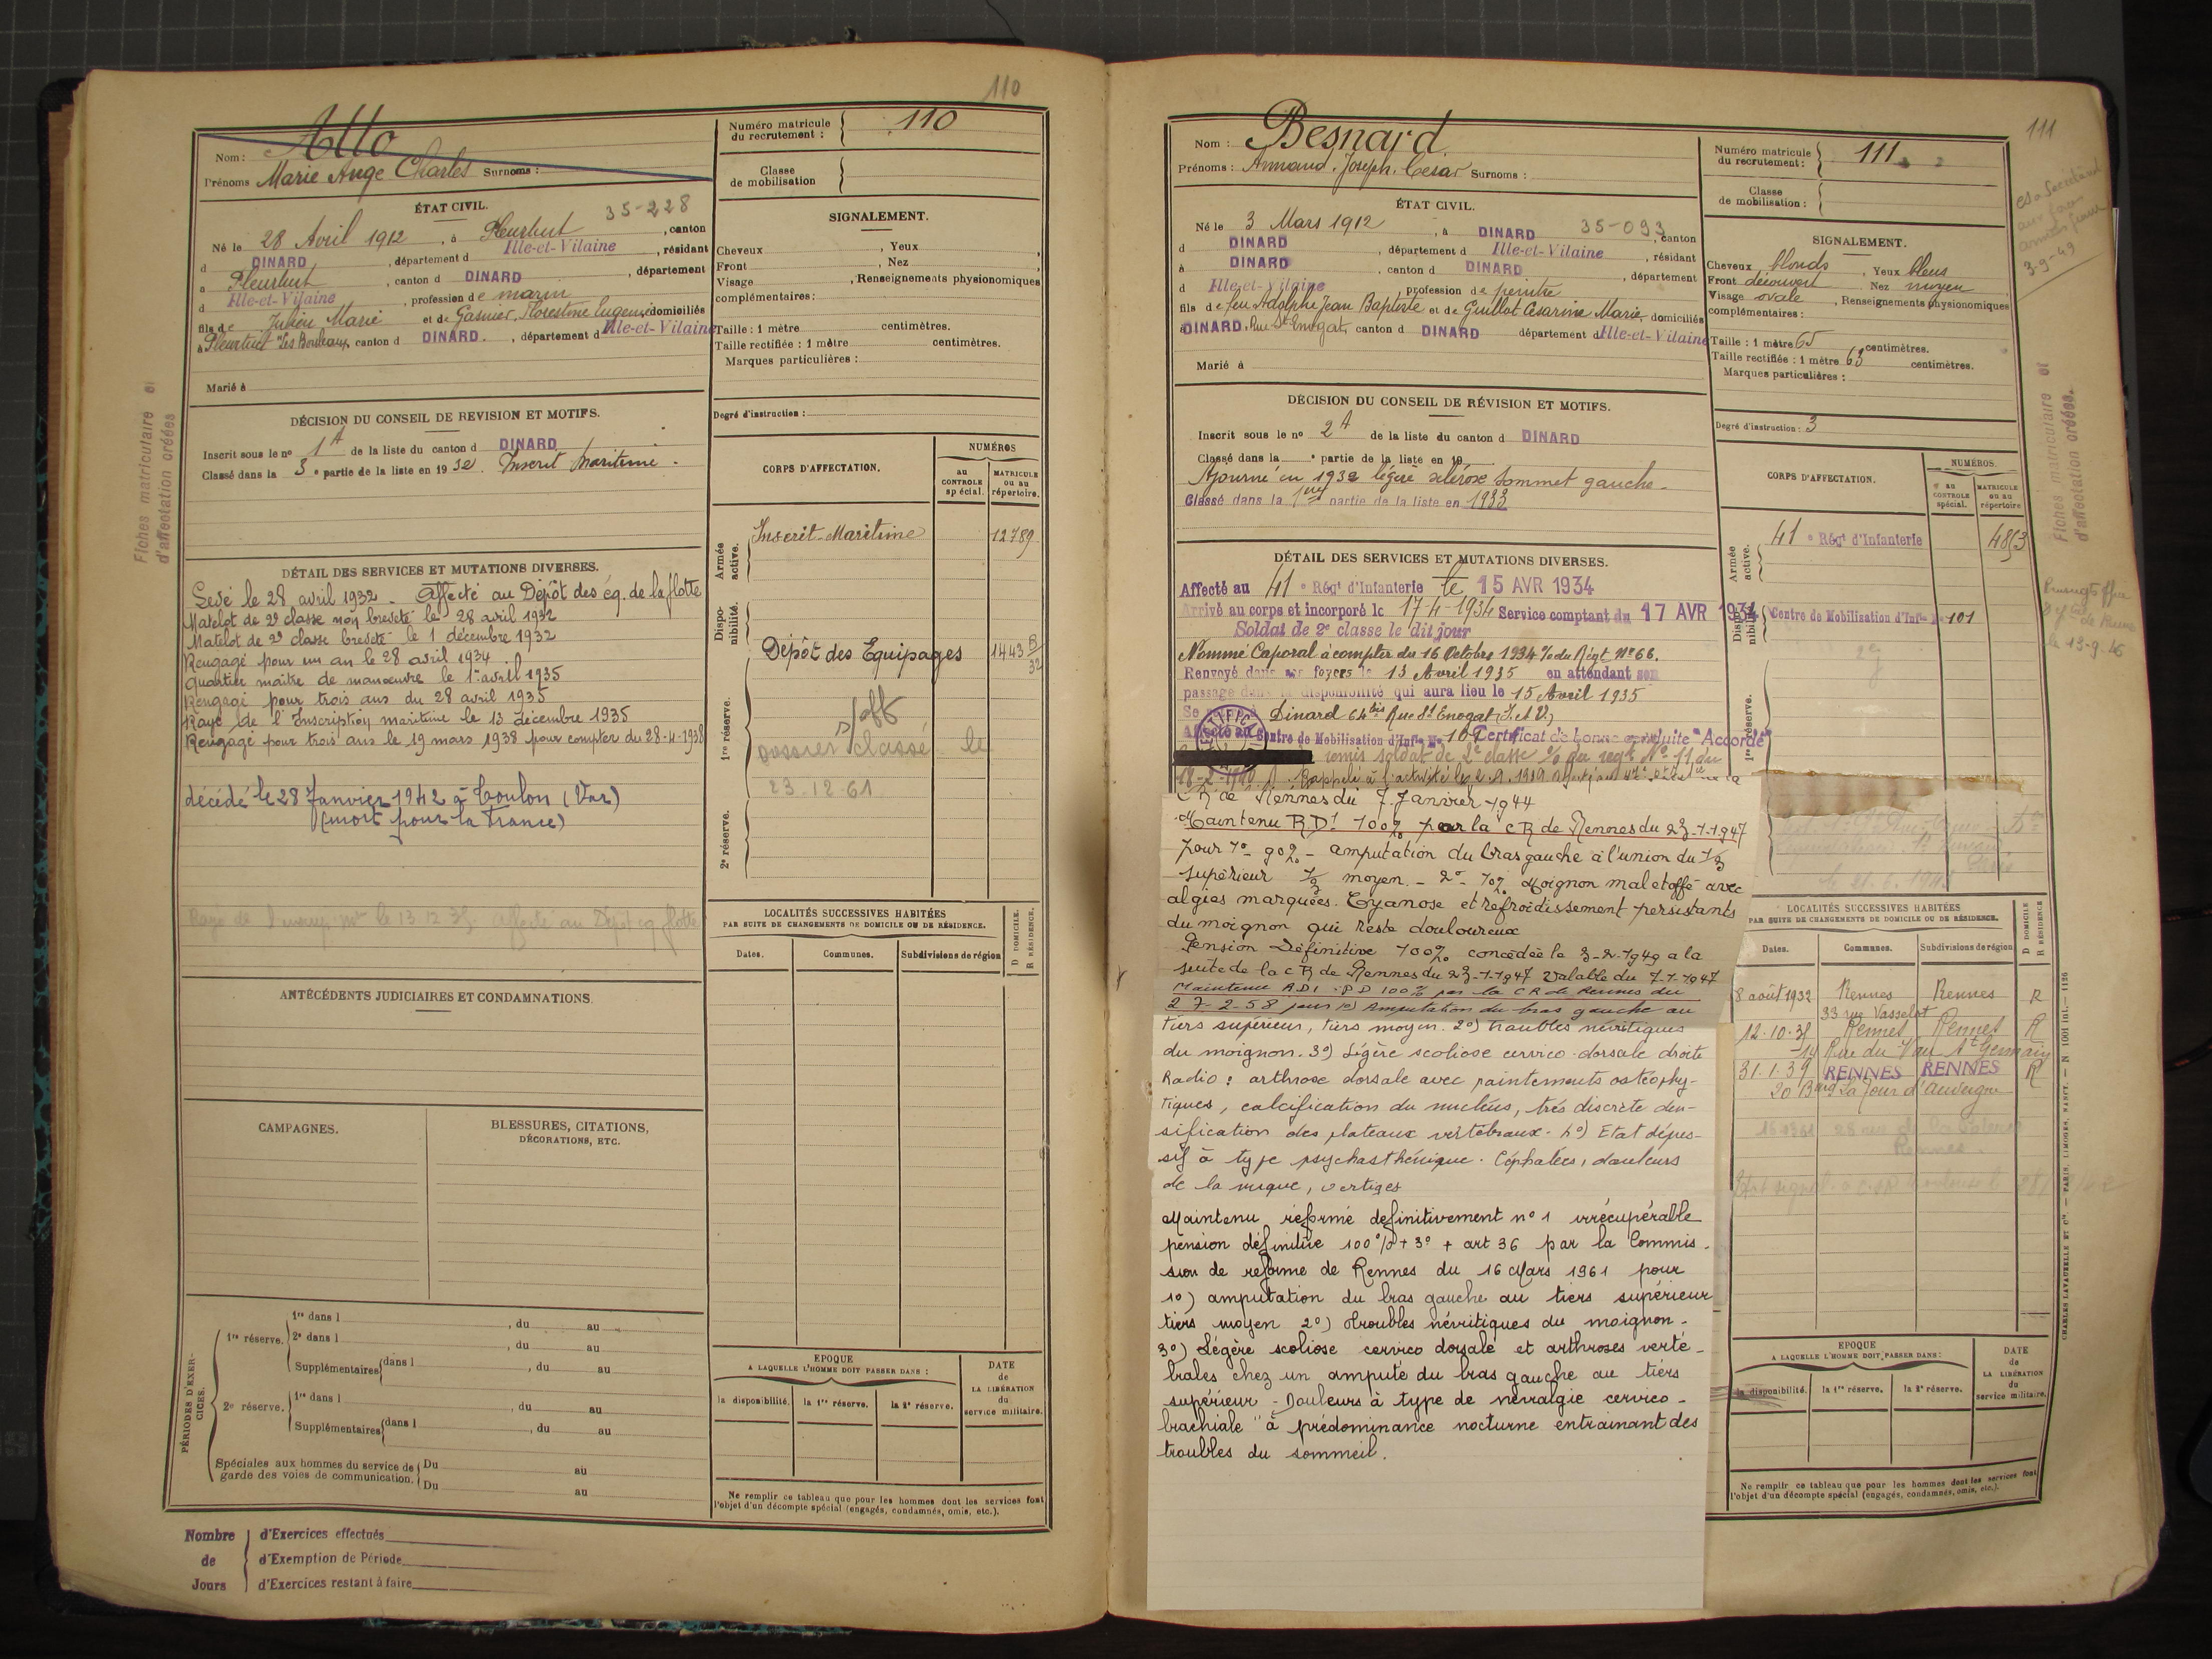 110
Nom : Allo
Prénoms Marie Ange Charles Surnoms :
Numéro matricule du recrutement : 110
Classe de mobilisation
ÉTAT CIVIL.
35-228
Né le 28 Avril 1912, à Pleurtuit, canton
d DINARD, département d Ille-et-Vilaine, résidant
à Pleurtuit, canton d DINARD, département
d Ille-et-Vilaine, profession de marin
fils de Julien Marie et de Gasnier, Florestine Eugenie domiciliés
à Pleurtuit "Les Bouleaux, canton d DINARD., département d Ille-et-Vilaine
Marié à
SIGNALEMENT.
Cheveux, Yeux,
Front, Nez,
Visage, Renseignements physionomiques
complémentaires :
Taille : 1 mètre centimètres.
Taille rectifiée : 1 mètre centimètres.
Marques particulières :
Degré d'instruction :
Fiches matriculaire et
d'affectation créées
DÉCISION DU CONSEIL DE REVISION ET MOTIFS.
Inscrit sous le nº 1A de la liste du canton d DINARD
Classé dans la 3e partie de la liste en 1932. Inscrit Maritime.
DÉTAIL DES SERVICES ET MUTATIONS DIVERSES.
Levé le 28 avril 1932 - Affecté au Dépôt des éq. de la flotte
Matelot de 2e classe non breveté le 28 avril 1932
Matelot de 2e classe breveté le 1 décembre 1932
Rengagé pour un an le 28 avril 1934.
Quartier maître de manœuvre le 1er avril 1935
Rengagé pour trois ans du 28 avril 1935
Rayé de l'Inscription maritime le 13 décembre 1935
Rengagé pour trois ans le 19 mars 1938 pour compter du 28-4-1938
décédé le 28 Janvier 1942 à Toulon (Var)
(mort pour la France)
le 13 12 35 affecté au Dépôt éq flotte
ANTÉCÉDENTS JUDICIAIRES ET CONDAMNATIONS.
CAMPAGNES.
BLESSURES, CITATIONS,
DÉCORATIONS, ETC.
PÉRIODES D'EXERCICES.
1re réserve.
1re dans l, du au
2e dans l, du au
Supplémentaires dans l, du au
2e réserve.
1re dans l, du au
Supplémentaires dans l, du au
Spéciales aux hommes du service de
garde des voies de communication.
Du au
Du au
Nombre de Jours
d'Exercices effectués
d'Exemption de Période
d'Exercices restant à faire
CORPS D'AFFECTATION.
NUMÉROS
AU CONTROLE spécial.
MATRICULE OU AU répertoire.
Armée active.
Inscrit Maritime 12789
Disponibilité.
Dépôt des Equipages 1443 B/32
1re réserve.
dossier classé le
23-12-61
2e réserve.
LOCALITÉS SUCCESSIVES HABITÉES
PAR SUITE DE CHANGEMENTS DE DOMICILE OU DE RÉSIDENCE.
D DOMICILE. R RÉSIDENCE.
Dates. Communes. Subdivisions de région
EPOQUE
A LAQUELLE L'HOMME DOIT PASSER DANS :
la disponibilité. la 1re réserve. la 2e réserve.
DATE de LA LIBÉRATION du service militaire.
Ne remplir ce tableau que pour les hommes dont les services font
l'objet d'un décompte spécial (engagés, condamnés, omis, etc.).
111
Nom : Besnard
Prénoms : Armand. Joseph. César Surnoms :
Numéro matricule du recrutement : 111
Classe de mobilisation :
ÉTAT CIVIL.
Né le 3 Mars 1912, à DINARD 35-093, canton
d DINARD, département d Ille-et-Vilaine, résidant
à DINARD, canton d DINARD, département
d Ille-et-Vilaine, profession de peintre
fils de feu Adolphe Jean Baptiste et de Guillot Césarine Marie, domiciliés
à DINARD, Rue St Enogat, canton d DINARD département d Ille-et-Vilaine
Marié à
SIGNALEMENT.
Cheveux blonds, Yeux bleus
Front découvert Nez moyen
Visage ovale, Renseignements physionomiques
complémentaires :
Taille : 1 mètre 65 centimètres.
Taille rectifiée : 1 mètre 63 centimètres.
Marques particulières :
Degré d'instruction : 3
3-9-43
Fiches matriculaire et
d'affectation créées.
le 13-9-46
DÉCISION DU CONSEIL DE RÉVISION ET MOTIFS.
Inscrit sous le nº 2A de la liste du canton d DINARD
Classé dans la e partie de la liste en 19
Ajourné en 1932 légère sclérose sommet gauche.
Classé dans la 1ère partie de la liste en 1933
DÉTAIL DES SERVICES ET MUTATIONS DIVERSES.
Affecté au 41e Régt d'Infanterie le 15 AVR 1934
Arrivé au corps et incorporé le 17-4-1934 Service comptant du 17 AVR 1934
Soldat de 2e classe le dit jour
Nommé Caporal à compter du 16 Octobre 1934 o/o du Régt Nº 66.
Renvoyé dans ses foyers le 13 Avril 1935 en attendant son
passage dans la disponibilité qui aura lieu le 15 Avril 1935
Se retire à Dinard 64bis Rue St Enogat (I. et V.)
Affecté au Centre de Mobilisation d'Infie Nº 101 Certificat de bonne conduite "Accordé"
remis soldat de 2e classe o/o du regt Nº 11 du
18-2-1940. Rappelé à l'activité le 2.9.1939
CR de Rennes du 7 Janvier 1944
Maintenu RD1 100% par la CR de Rennes du 23-1-1947
pour 1º 90% - amputation du bras gauche à l'union du 1/3
supérieur 1/3 moyen - 2º - 10% Moignon mal etoffé avec
algies marquées. Cyanose et refroidissement persistants
du moignon qui reste douloureux
Pension Définitive 100% concédée le 3-2-1949 a la
suite de la CR de Rennes du 23-1-1947 valable du 7-1-1947
Maintenu RD1 : PD 100% par la CR de Rennes du
27-2-58 pour 1º) Amputation du bras gauche au
tiers supérieur, tiers moyen. 2º) troubles névritiques
du moignon. 3º) Légère scoliose cervico-dorsale droite
Radio : arthrose dorsale avec pointements ostéophy-
tiques, calcification du nucléus, très discrète den-
sification des plateaux vertébraux. 4º) Etat dépres-
sif à type psychasthénique. Céphalées, douleurs
de la nuque, vertiges
Maintenu réformé definitivement nº 1 irrécupérable
pension définitive 100% + 3º + art 36 par la Commis-
sion de réforme de Rennes du 16 Mars 1961 pour
1º) amputation du bras gauche au tiers supérieur
tiers moyen 2º) troubles névritiques du moignon-
3º) Légère scoliose cervico dorsale et arthroses verté-
brales chez un amputé du bras gauche au tiers
supérieur - Douleurs à type de névralgie cervico-
brachiale" à prédominance nocturne entrainant des
troubles du sommeil.
CORPS D'AFFECTATION.
NUMÉROS.
AU CONTROLE spécial.
MATRICULE OU AU répertoire
Armée active.
41e Régt d'Infanterie 4853
Disponibilité.
Centre de Mobilisation d'Infie Nº 101
1re réserve.
LOCALITÉS SUCCESSIVES HABITÉES
PAR SUITE DE CHANGEMENTS DE DOMICILE OU DE RÉSIDENCE.
D DOMICILE R RÉSIDENCE
Dates. Communes. Subdivisions de région
8 août 1932 Rennes Rennes R
33 rue Vasselot
12-10-35 Rennes Rennes R
14 Rue du Vau St Germain
31.1.39 RENNES RENNES R
20 Bard La Tour d'Auvergne
Rennes.
EPOQUE
A LAQUELLE L'HOMME DOIT PASSER DANS :
la disponibilité. la 1re réserve. la 2e réserve.
DATE de LA LIBÉRATION du service militaire.
Ne remplir ce tableau que pour les hommes dont les services font
l'objet d'un décompte spécial (engagés, condamnés, omis, etc.).
CHARLES LAVAUZELLE ET Cie. — PARIS, LIMOGES, NANCY. — N 1001 int. — 1126